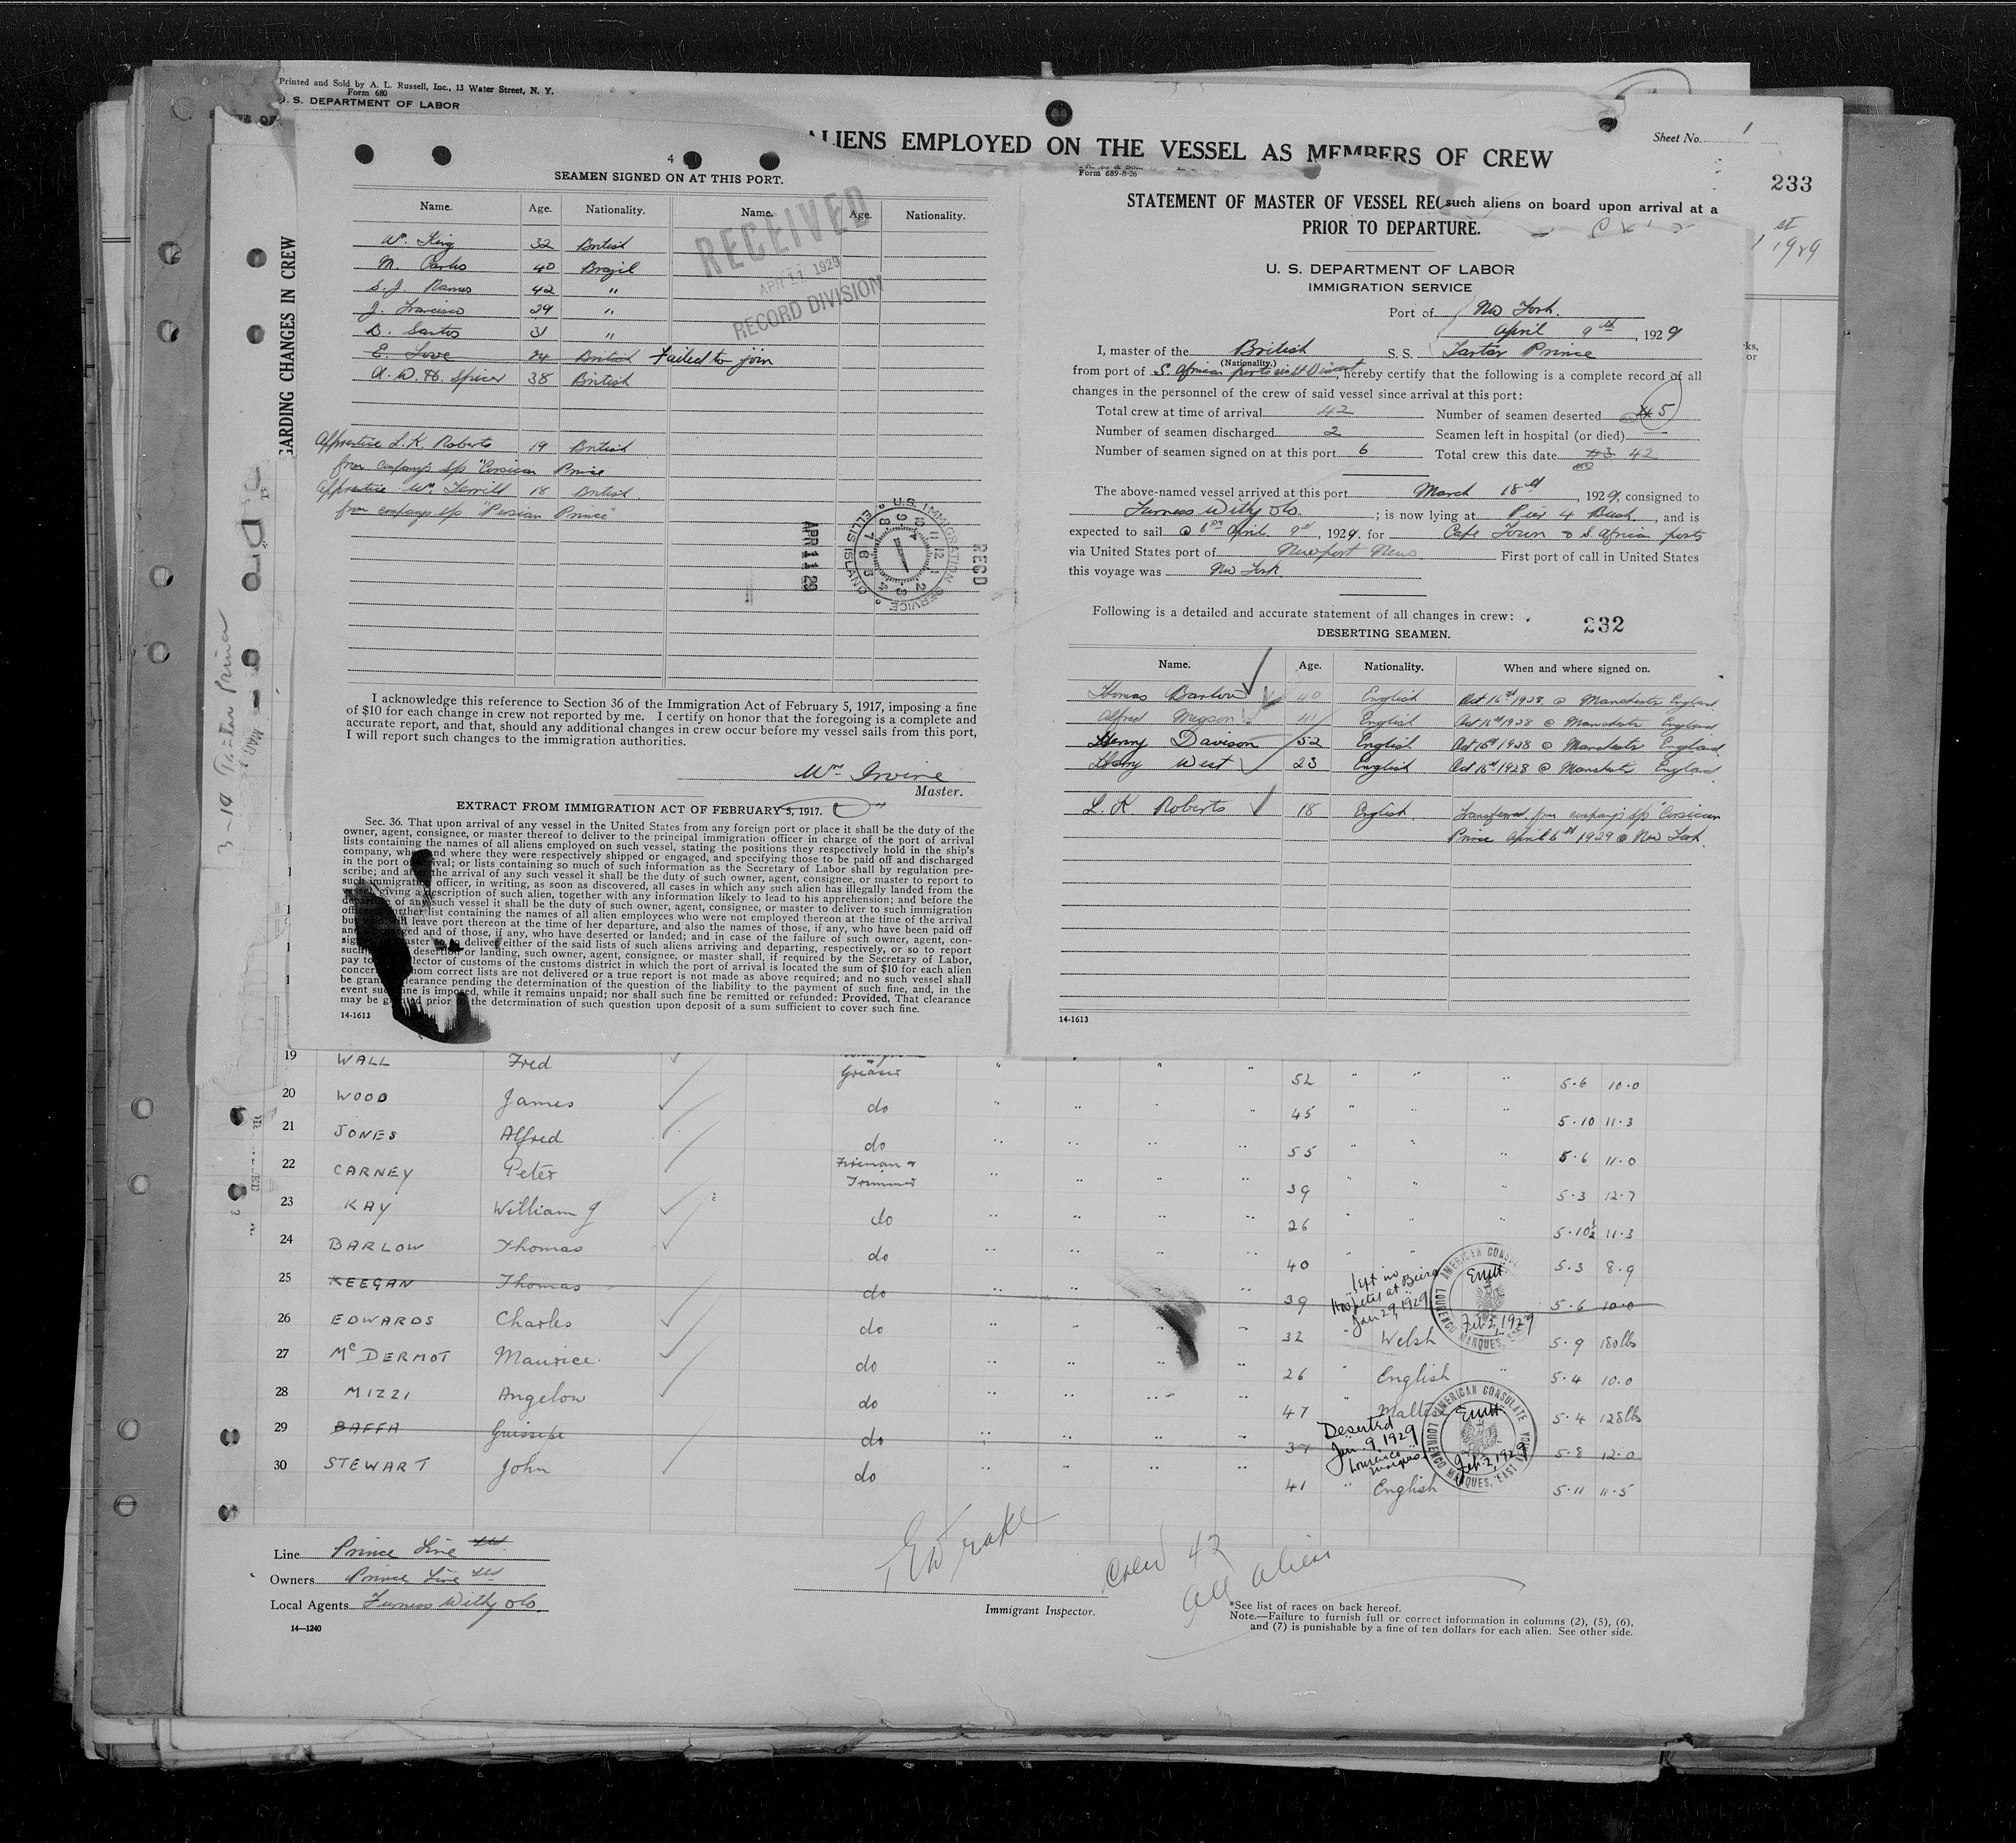 Printed and Sold by A. L. Russell, Inc., 13 Water Street, N. Y.
Form 680
U. S. DEPARTMENT OF LABOR
ALIENS EMPLOYED ON THE VESSEL AS MEMBERS OF CREW
Sheet No. 1
233
such aliens on board upon arrival at a
1st 1929
GARDING CHANGES IN CREW
3-19 Tartar Prince
4
SEAMEN SIGNED ON AT THIS PORT.
Name. Age. Nationality. Name. Age. Nationality.
Wm. King 32 British
M. Carlos 40 Brazil
S. J. Ramos 42 "
J. Francisco 29 "
B. Santos 31 "
E. Love 24 British Failed to join
A. W. H. Spicer 38 British
Apprentice L. K. Roberts 19 British
from company's s/s "Corsican Prince
Apprentice Wm. Terrill 18 British.
from company's s/s "Persian Prince"
RECEIVED
APR 11 1929
RECORD DIVISION
APR 11 29
U. S. IMMIGRATION SERVICE
ELLIS ISLAND
REC'D
I acknowledge this reference to Section 36 of the Immigration Act of February 5, 1917, imposing a fine
of $10 for each change in crew not reported by me. I certify on honor that the foregoing is a complete and
accurate report, and that, should any additional changes in crew occur before my vessel sails from this port,
I will report such changes to the immigration authorities.
Wm Irvine
Master.
EXTRACT FROM IMMIGRATION ACT OF FEBRUARY 5, 1917.
Sec. 36. That upon arrival of any vessel in the United States from any foreign port or place it shall be the duty of the
owner, agent, consignee, or master thereof to deliver to the principal immigration officer in charge of the port of arrival
lists containing the names of all aliens employed on such vessel, stating the positions they respectively hold in the ship's
company, when and where they were respectively shipped or engaged, and specifying those to be paid off and discharged
in the port of arrival; or lists containing so much of such information as the Secretary of Labor shall by regulation pre-
scribe; and after the arrival of any such vessel it shall be the duty of such owner, agent, consignee, or master to report to
such immigration officer, in writing, as soon as discovered, all cases in which any such alien has illegally landed from the
vessel, giving a description of such alien, together with any information likely to lead to his apprehension; and before the
departure of any such vessel it shall be the duty of such owner, agent, consignee, or master to deliver to such immigration
officer a further list containing the names of all alien employees who were not employed thereon at the time of the arrival
but who will leave port thereon at the time of her departure, and also the names of those, if any, who have been paid off
and discharged and of those, if any, who have deserted or landed; and in case of the failure of such owner, agent, con-
signee, or master to deliver either of the said lists of such aliens arriving and departing, respectively, or so to report
such desertion or landing, such owner, agent, consignee, or master shall, if required by the Secretary of Labor,
pay to collector of customs of the customs district in which the port of arrival is located the sum of $10 for each alien
concerning whom correct lists are not delivered or a true report is not made as above required; and no such vessel shall
be granted clearance pending the determination of the question of the liability to the payment of such fine, and, in the
event such fine is imposed, while it remains unpaid; nor shall such fine be remitted or refunded: Provided, That clearance
may be granted prior to the determination of such question upon deposit of a sum sufficient to cover such fine.
14-1613
Form 689-8-26
STATEMENT OF MASTER OF VESSEL REG
PRIOR TO DEPARTURE.
U. S. DEPARTMENT OF LABOR
IMMIGRATION SERVICE
Port of New York.
April 9th, 1929
I, master of the British S. S. Tartar Prince
(Nationality.)
from port of S. African ports via St Vincent, hereby certify that the following is a complete record of all
changes in the personnel of the crew of said vessel since arrival at this port:
Total crew at time of arrival 42 Number of seamen deserted 5
Number of seamen discharged 2 Seamen left in hospital (or died) —
Number of seamen signed on at this port 6 Total crew this date 43 42
The above-named vessel arrived at this port March 18th, 1929, consigned to
Furness Withy & Co.; is now lying at Pier 4 Bush, and is
expected to sail @ 6 PM April 9th, 1929. for Cape Town & S. African ports
via United States port of Newport News First port of call in United States
this voyage was New York.
Following is a detailed and accurate statement of all changes in crew:
232
DESERTING SEAMEN.
Name. Age. Nationality. When and where signed on.
Thomas Barlow 40 English Oct 16th 1928 @ Manchester England
Alfred Megson 41 English Oct 16th 1928 @ Manchester England
Henry Davison 52 English Oct 16th 1928 @ Manchester England
Harry West 23 English Oct 16th 1928 @ Manchester England
L. K Roberts 18 English. Transferred from company's s/s "Corsican
Prince April 6th 1929 @ New York.
14-1613
19 WALL Fred Greaser 52 " " " 5·6 10·0
20 WOOD James do 45 5·10 11·3
21 JONES Alfred do 55 5·6 11·0
22 CARNEY Peter Fireman & Trimmer 39 5·3 12·7
23 KAY William J do 26 5·10½ 11·3
24 BARLOW Thomas do 40 5·3 8·9
25 KEEGAN Thomas do 39 5·6 10·0
left in Hospital at Beira Jan 29, 1929
AMERICAN CONSUL LOURENCO MARQUES, Feb 2, 1929
26 EDWARDS Charles do 32 Welsh 5·9 180lbs
27 McDERMOT Maurice do 26 English 5·4 10·0
28 MIZZI Angelow do 47 Maltese 5·4 128lbs
29 BAFFA Guissepe do 37 5·8 12·0
Deserted Jan. 9, 1929 Lourenco Marques
AMERICAN CONSULATE LOURENCO MARQUES, EAST AFRICA Feb. 2, 1929
30 STEWART John do 41 " English 5·11 11·5
Line Prince Line Ltd
Owners Prince Line Ltd
Local Agents Furness Withy & Co.
14—1240
Immigrant Inspector.
Crew 42
All alien
*See list of races on back hereof.
Note.—Failure to furnish full or correct information in columns (2), (5), (6),
and (7) is punishable by a fine of ten dollars for each alien. See other side.